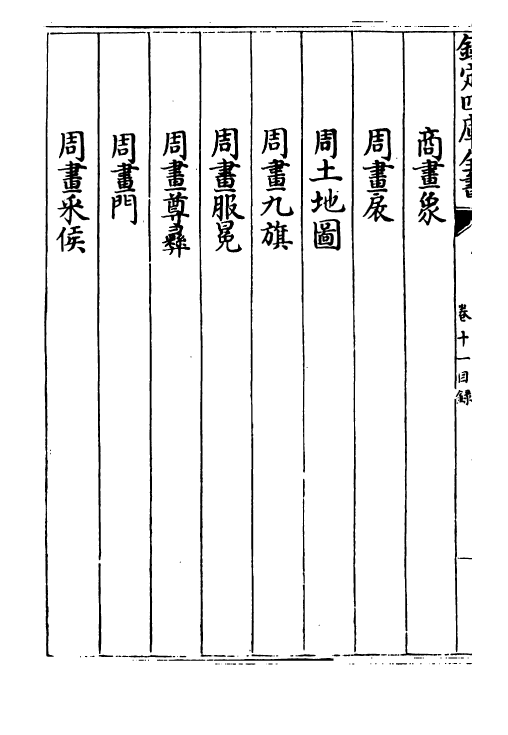 欽定四庫全書
卷十一目錄
商畫象
周畫扆
周土地圖
周畫九旗
周畫服冕
周畫尊彞
周畫門
周畫采侯